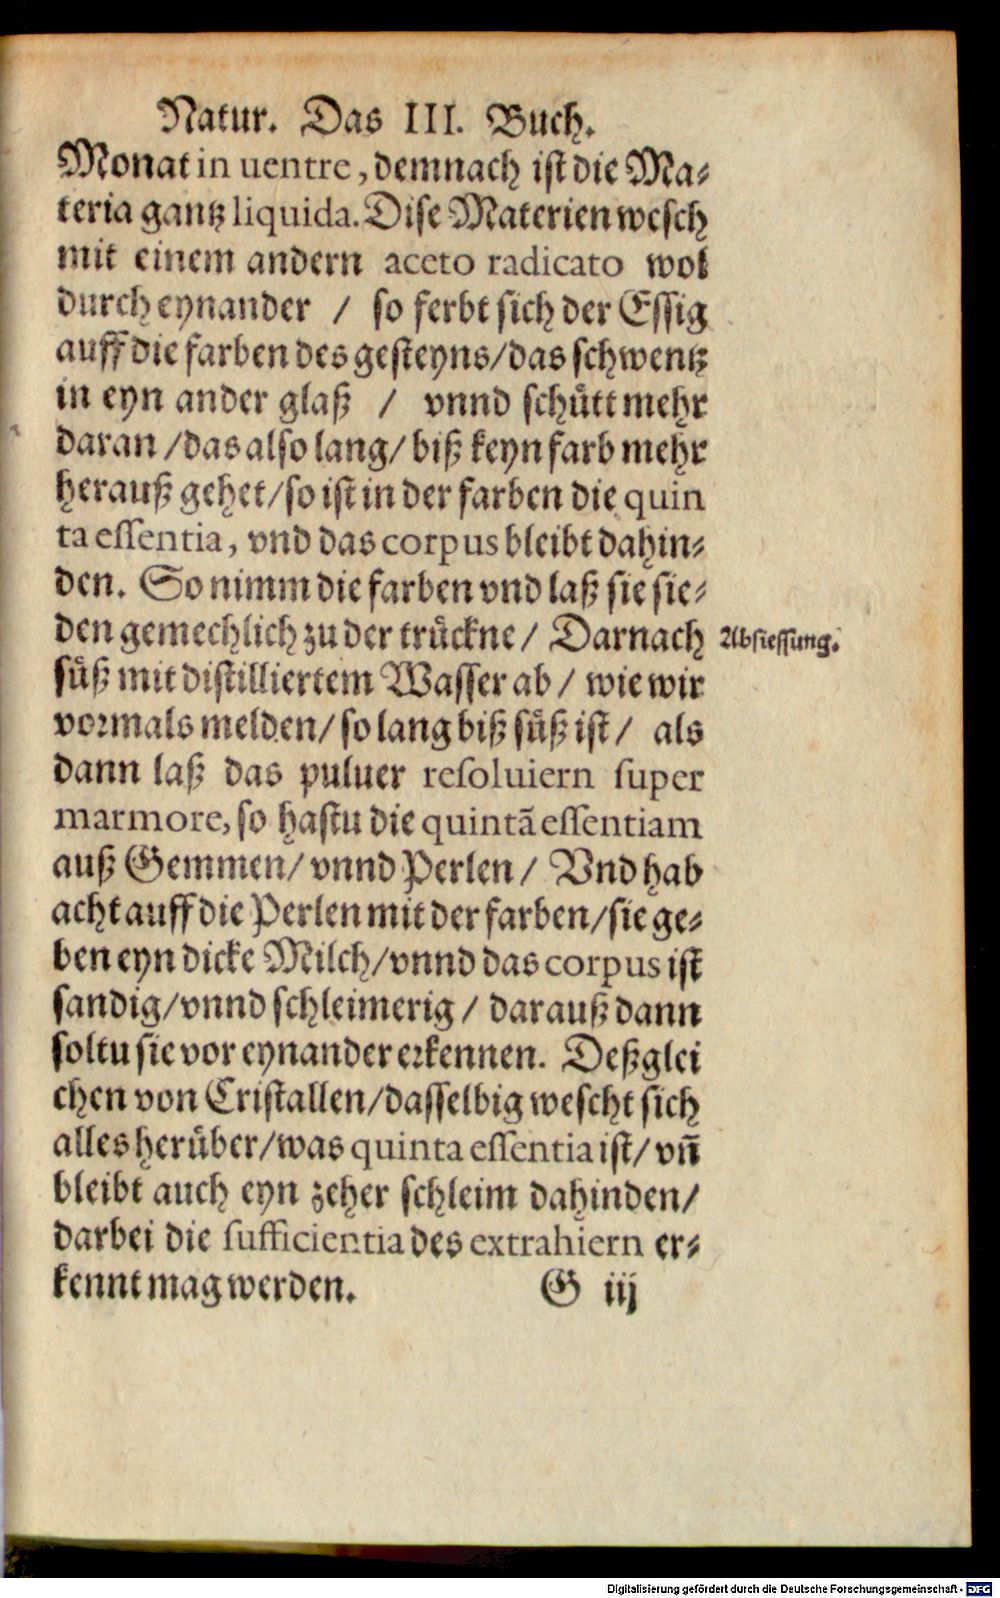 Natur. Das III. Buch.
Monat in uentre, demnach ist die Ma⸗
teria gantz liquida. Dise Materien wesch
mit einem andern aceto radicato wol
durch eynander / so ferbt sich der Essig
auff die farben des gesteyns/das schwentz
in eyn ander glaß / vnnd schuͤtt mehr
daran /das also lang/ biß keyn farb mehr
herauß gehet/so ist in der farben die quin
ta essentia, vnd das corpus bleibt dahin⸗
den. So nimm die farben vnd laß sie sie⸗
den gemechlich zu der truͤckne/ Darnach
Absiessung.
suͤß mit distilliertem Wasser ab/ wie wir
vormals melden/so lang biß suͤß ist/ als
dann laß das puluer resoluiern super
marmore, so hastu die quintã essentiam
auß Gemmen/vnnd Perlen/ Vnd hab
acht auff die Perlen mit der farben/sie ge⸗
ben eyn dicke Milch/vnnd das corpus ist
sandig/vnnd schleimerig/ darauß dann
soltu sie vor eynander erkennen. Deßglei
chen von Cristallen/dasselbig wescht sich
alles heruͤber/was quinta essentia ist/ vñ
bleibt auch eyn zeher schleim dahinden/
darbei die sufficientia des extrahiern er⸗
kennt mag werden.
G iij
Digitalisierung gefördert durch die Deutsche Forschungsgemeinschaft - DFG